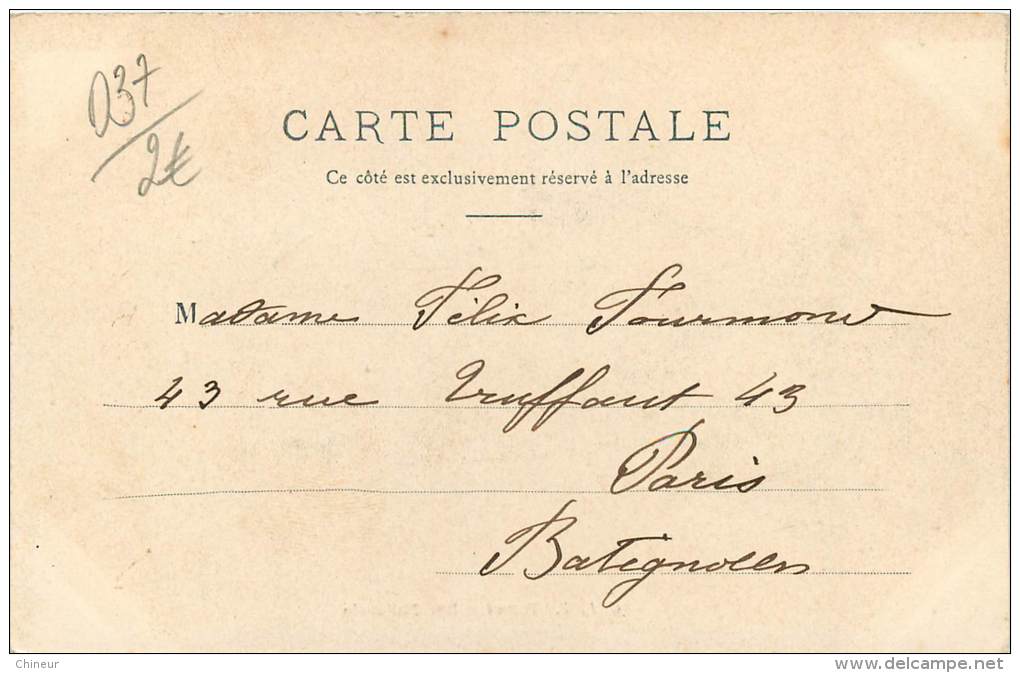 D37
2€
CARTE POSTALE
Ce côté est exclusivement réservé à l'adresse
Madame Félix Fourmont
43 rue Truffaut 43
Paris
Batignolles
Chineur
www.delcampe.net